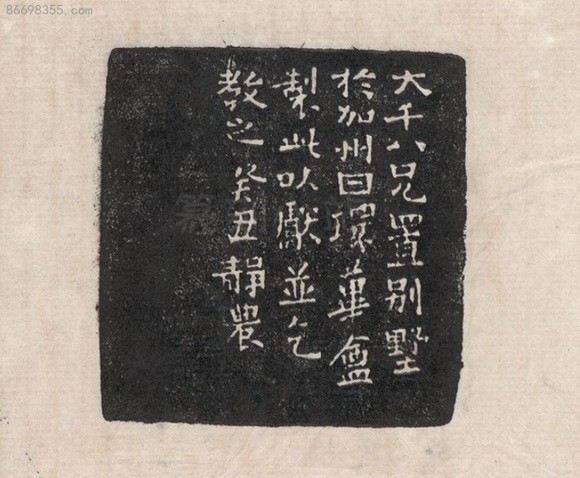 86698355.com
大千八兄置別墅
於加州曰環蓽盦
製此以獻並乞
教之 癸丑靜農